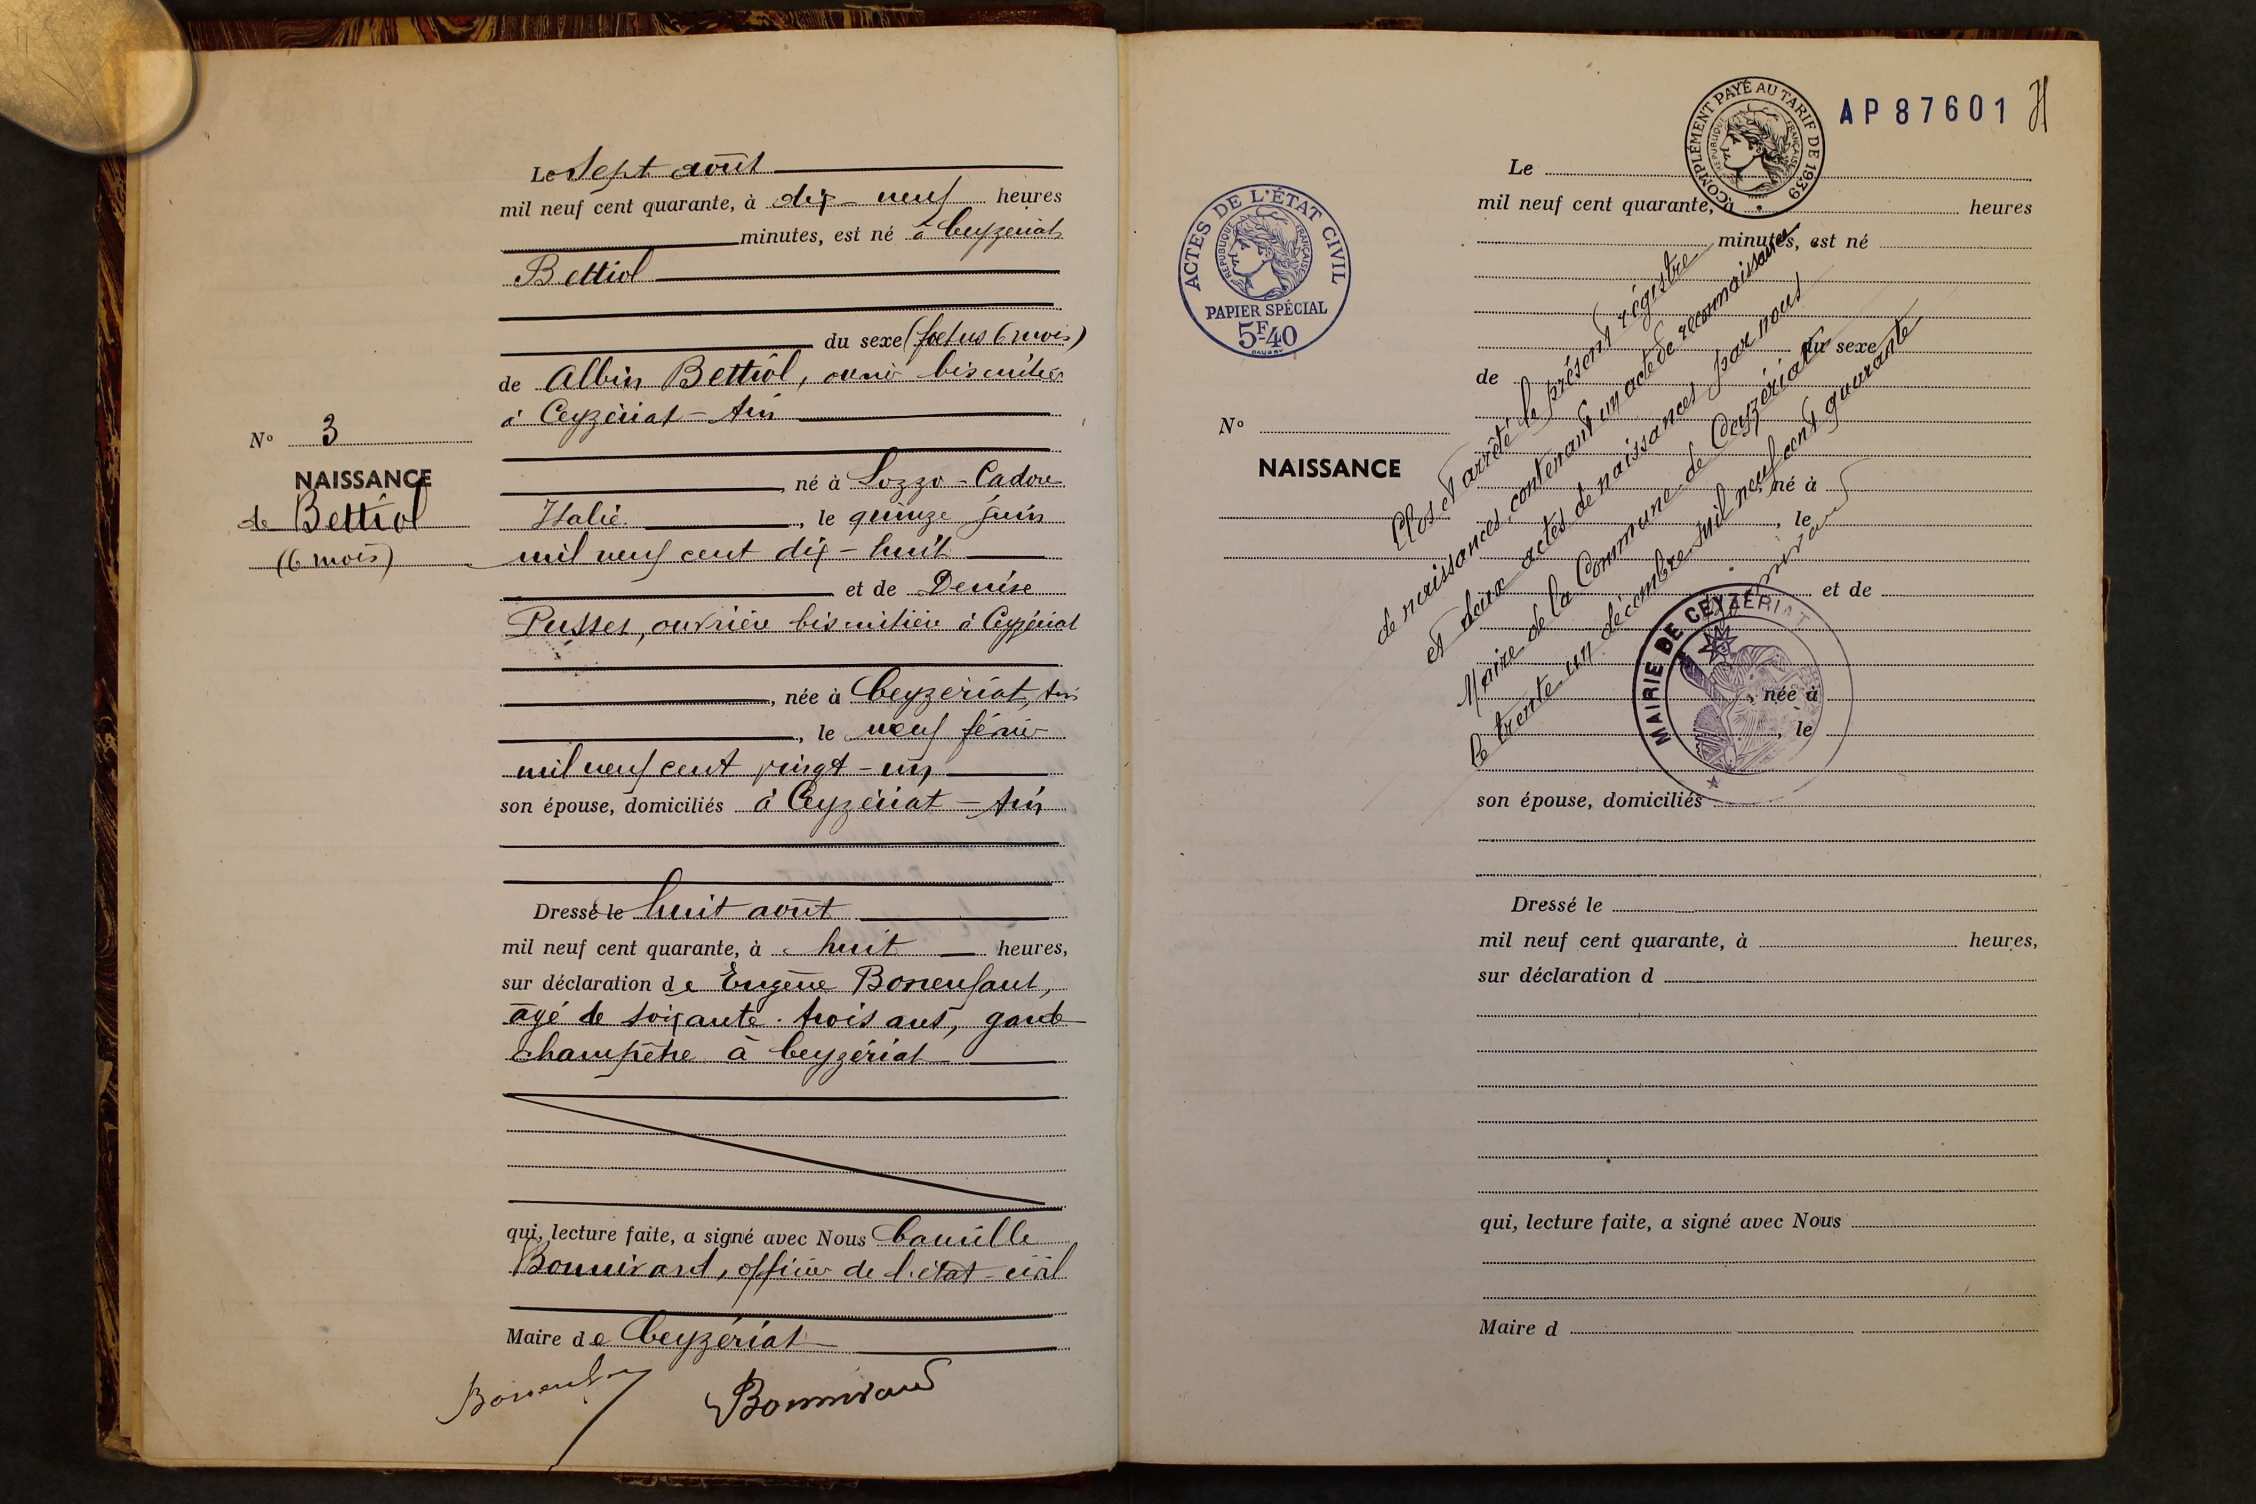 Le sept août
mil neuf cent quarante, à dix-neuf heures
minutes, est né à Ceyzériat
Bettiol
du sexe (fœtus 6 mois)
de Albin Bettiol, ouvrier biscuitier
à Ceyzériat - Ain
né à Lozzo-Cadore
Italie, le quinze juin
mil neuf cent dix-huit
et de Denise
ouvrière biscuitière à Ceyzériat
, née à Ceyzériat, Ain
, le neuf février
mil neuf cent vingt-un
son épouse, domiciliés à Ceyzériat - Ain
Dressé le huit août
mil neuf cent quarante, à huit heures,
sur déclaration de Eugène Bonenfant,
âgé de soixante-trois ans, garde
champêtre à Ceyzériat
qui, lecture faite, a signé avec Nous Camille
Bonnivard, officier de l'état-civil
Maire de Ceyzériat
Bonenfan
Bonnivard
N° 3
NAISSANCE
de Bettiol
(6 mois)
AP 87601
COMPLÉMENT PAYÉ AU TARIF DE 1939
RÉPUBLIQUE FRANÇAISE
ACTES DE L'ÉTAT CIVIL
RÉPUBLIQUE FRANÇAISE
PAPIER SPÉCIAL
5F40
Le
mil neuf cent quarante, à heures
minutes, est né
du sexe
de
, né à
, le
et de
, née à
, le
son épouse, domiciliés
Dressé le
mil neuf cent quarante, à heures,
sur déclaration d
qui, lecture faite, a signé avec Nous
Maire d
N°
NAISSANCE
Clos et arrêté le présent régistre
de naissances, contenant un acte de reconnaissance
et deux actes de naissances par nous
Maire de la Commune de Ceyzériat
le trente un décembre mil neuf cent quarante
Bonnivard
MAIRIE DE CEYZÉRIAT